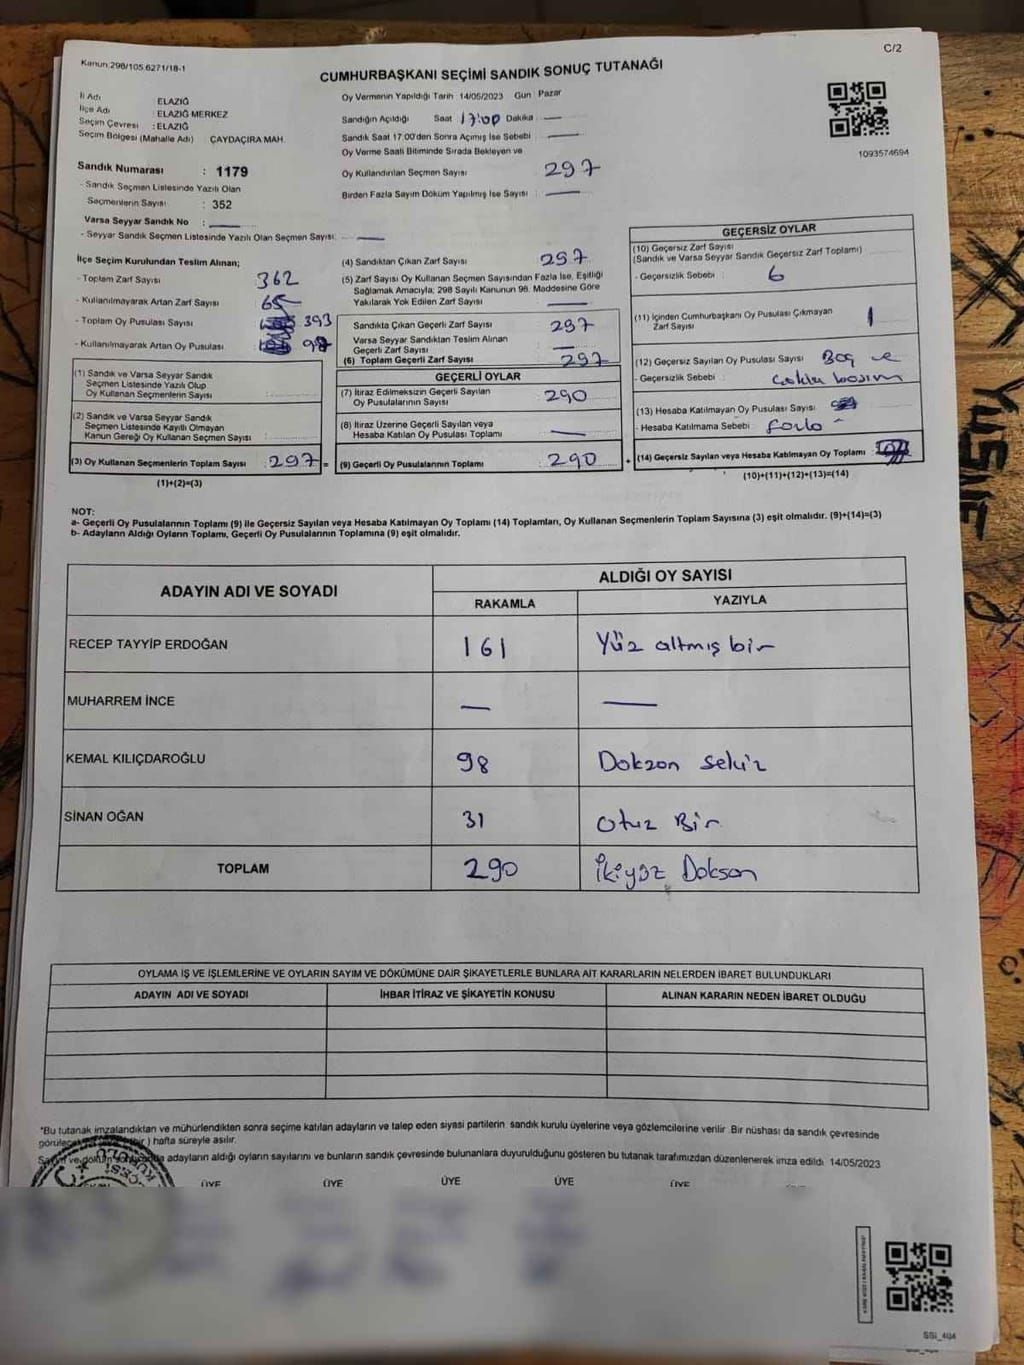 Kanun:298/105.6271/18-1
C/2
CUMHURBAŞKANI SEÇİMİ SANDIK SONUÇ TUTANAĞI
İl Adı : ELAZIĞ
İlçe Adı : ELAZIĞ MERKEZ
Seçim Çevresi : ELAZIĞ
Seçim Bölgesi (Mahalle Adı) ÇAYDAÇIRA MAH.
Sandık Numarası : 1179
- Sandık Seçmen Listesinde Yazılı Olan
Seçmenlerin Sayısı : 352
Varsa Seyyar Sandık No :
- Seyyar Sandık Seçmen Listesinde Yazılı Olan Seçmen Sayısı:
Oy Vermenin Yapıldığı Tarih 14/05/2023 Gün Pazar
Sandığın Açıldığı Saat 17:00 Dakika
Sandık Saat 17:00'den Sonra Açımış İse Sebebi
Oy Verme Saati Bitiminde Sırada Bekleyen ve
Oy Kullandırılan Seçmen Sayısı 297
Birden Fazla Sayım Döküm Yapılmış İse Sayısı
1093574694
İlçe Seçim Kurulundan Teslim Alınan;
- Toplam Zarf Sayısı 362
- Kullanılmayarak Artan Zarf Sayısı 65
- Toplam Oy Pusulası Sayısı 393
- Kullanılmayarak Artan Oy Pusulası
(1) Sandık ve Varsa Seyyar Sandık
Seçmen Listesinde Yazılı Olup
Oy Kullanan Seçmenlerin Sayısı
(2) Sandık ve Varsa Seyyar Sandık
Seçmen Listesinde Kayıtlı Olmayan
Kanun Gereği Oy Kullanan Seçmen Sayısı
(3) Oy Kullanan Seçmenlerin Toplam Sayısı : 297 =
(1)+(2)=(3)
(4) Sandıktan Çıkan Zarf Sayısı 297
(5) Zarf Sayısı Oy Kullanan Seçmen Sayısından Fazla İse, Eşitliği
Sağlamak Amacıyla; 298 Sayılı Kanunun 98. Maddesine Göre
Yakılarak Yok Edilen Zarf Sayısı
Sandıkta Çıkan Geçerli Zarf Sayısı 297
Varsa Seyyar Sandıktan Teslim Alınan
Geçerli Zarf Sayısı
(6) Toplam Geçerli Zarf Sayısı 297
GEÇERLİ OYLAR
(7) İtiraz Edilmeksizin Geçerli Sayılan
Oy Pusulalarının Sayısı 290
(8) İtiraz Üzerine Geçerli Sayılan veya
Hesaba Katılan Oy Pusulası Toplamı
(9) Geçerli Oy Pusulalarının Toplamı : 290 +
GEÇERSİZ OYLAR
(10) Geçersiz Zarf Sayısı
(Sandık ve Varsa Seyyar Sandık Geçersiz Zarf Toplamı)
- Geçersizlik Sebebi : 6
(11) İçinden Cumhurbaşkanı Oy Pusulası Çıkmayan
Zarf Sayısı 1
(12) Geçersiz Sayılan Oy Pusulası Sayısı Boş ve
- Geçersizlik Sebebi
(13) Hesaba Katılmayan Oy Pusulası Sayısı
- Hesaba Katılmama Sebebi
(14) Geçersiz Sayılan veya Hesaba Katılmayan Oy Toplamı
(10)+(11)+(12)+(13)=(14)
NOT:
a- Geçerli Oy Pusulalarının Toplamı (9) ile Geçersiz Sayılan veya Hesaba Katılmayan Oy Toplamı (14) Toplamları, Oy Kullanan Seçmenlerin Toplam Sayısına (3) eşit olmalıdır. (9)+(14)=(3)
b- Adayların Aldığı Oyların Toplamı, Geçerli Oy Pusulalarının Toplamına (9) eşit olmalıdır.
ADAYIN ADI VE SOYADI ALDIĞI OY SAYISI
RAKAMLA YAZIYLA
RECEP TAYYİP ERDOĞAN 161 Yüz altmış bir
MUHARREM İNCE
KEMAL KILIÇDAROĞLU 98 Dokzan sekiz
SİNAN OĞAN 31 Otuz Bir
TOPLAM 290 İkiyüz Doksan
OYLAMA İŞ VE İŞLEMLERİNE VE OYLARIN SAYIM VE DÖKÜMÜNE DAİR ŞİKAYETLERLE BUNLARA AİT KARARLARIN NELERDEN İBARET BULUNDUKLARI
ADAYIN ADI VE SOYADI İHBAR İTİRAZ VE ŞİKAYETİN KONUSU ALINAN KARARIN NEDEN İBARET OLDUĞU
*Bu tutanak imzalandıktan ve mühürlendikten sonra seçime katılan adayların ve talep eden siyasi partilerin sandık kurulu üyelerine veya gözlemcilerine verilir. Bir nüshası da sandık çevresinde
hafta süreyle asılır.
adayların aldığı oyların sayılarını ve bunların sandık çevresinde bulunanlara duyurulduğunu gösteren bu tutanak tarafımızdan düzenlenerek imza edildi. 14/05/2023
ÜYE ÜYE ÜYE ÜYE ÜYE
SSI_404